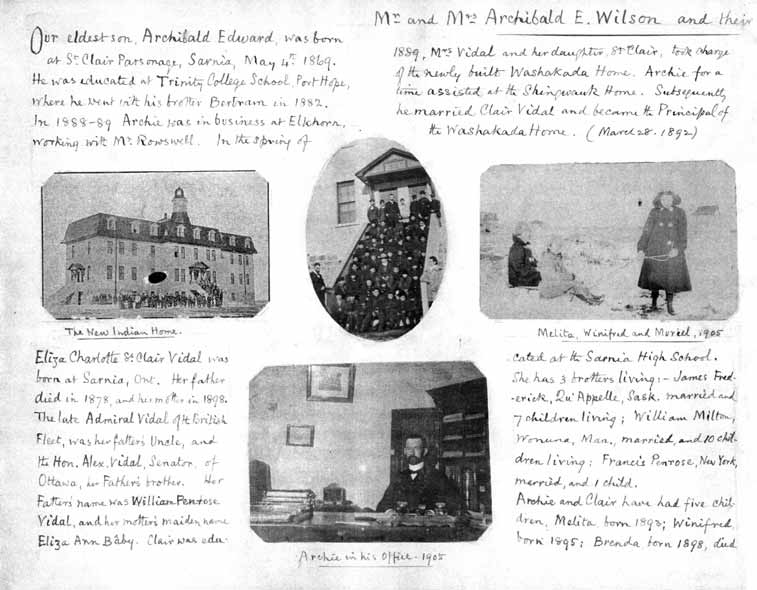 Mr and Mrs Archibald E. Wilson and their
Our eldest son, Archibald Edward, was born
at St Clair Parsonage, Sarnia, May 4th 1869.
He was educated at Trinity College School, Port Hope,
where he went with his brother Bertram in 1882.
In 1888-89 Archie was in business at Elkhorn,
working with Mr. Rowswell. In the spring of
1889, Mrs Vidal and her daughter, St Clair, took charge
of the newly built Washakada Home. Archie for a
time assisted at the Shingwauk Home. Subsequently
he married Clair Vidal and became the Principal of
the Washakada Home. (March 28. 1892)
The New Indian Home.
Melita, Winifred and Muriel, 1905
Eliza Charlotte St Clair Vidal was
born at Sarnia, Ont. Her father
died in 1878, and her mother in 1898.
The late Admiral Vidal of the British
Fleet, was her father's Uncle, and
the Hon. Alex. Vidal, Senator, of
Ottawa, her Father's brother. Her
Father's name was William Penrose
Vidal, and her mother's maiden name
Eliza Ann Bâby. Clair was edu-
Archie in his Office - 1905
cated at the Sarnia High School.
She has 3 brothers living:- James Fred-
erick, Qu'Appelle, Sask. married and
7 children living; William Milton,
Man., married, and 10 chil-
dren living; Francis Penrose, New York,
married, and 1 child.
Archie and Clair have had five chil-
dren, Melita born 1893; Winifred
born 1895; Brenda born 1898, died